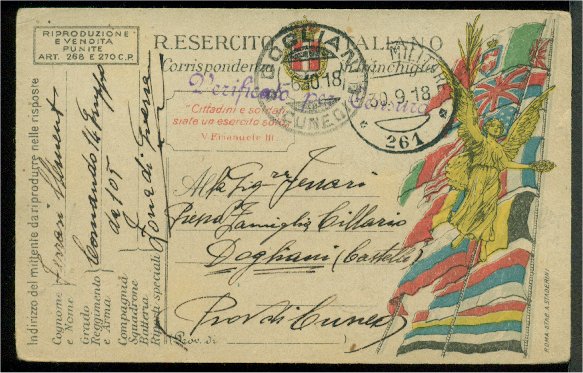 RIPRODUZIONE
E VENDITA
PUNITE
ART. 268 E 270 C.P.
R. ESERCITO ITALIANO
Corrispondenza in franchigia
Verificato per Censura
"Cittadini e soldati
siate un esercito solo"
V. Emanuele III
DOGLIANI
10 18
(CUNEO)
MILITARE
30.9.18
261
Indirizzo del mittente da riprodurre nelle risposte
Cognome
e Nome
Grado
Reggimento
e Arma
Compagnia
Squadrone
Batteria
Reparti speciali
Ferrari
Comando
da 105
Zona di Guerra
Ferrari
Presso Famiglia Cillario
Dogliani (Castello)
Prov. di Cuneo
Prov. di
ROMA-STAB. A. STADERINI